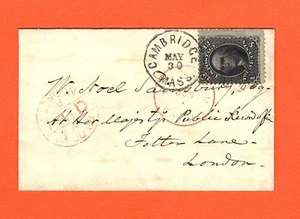 CAMBRIDGE
MAY
30
MASS
W. Noel Sainsbury, Esq.
At Her Majesty's Public Record Off
Fetter Lane
London.